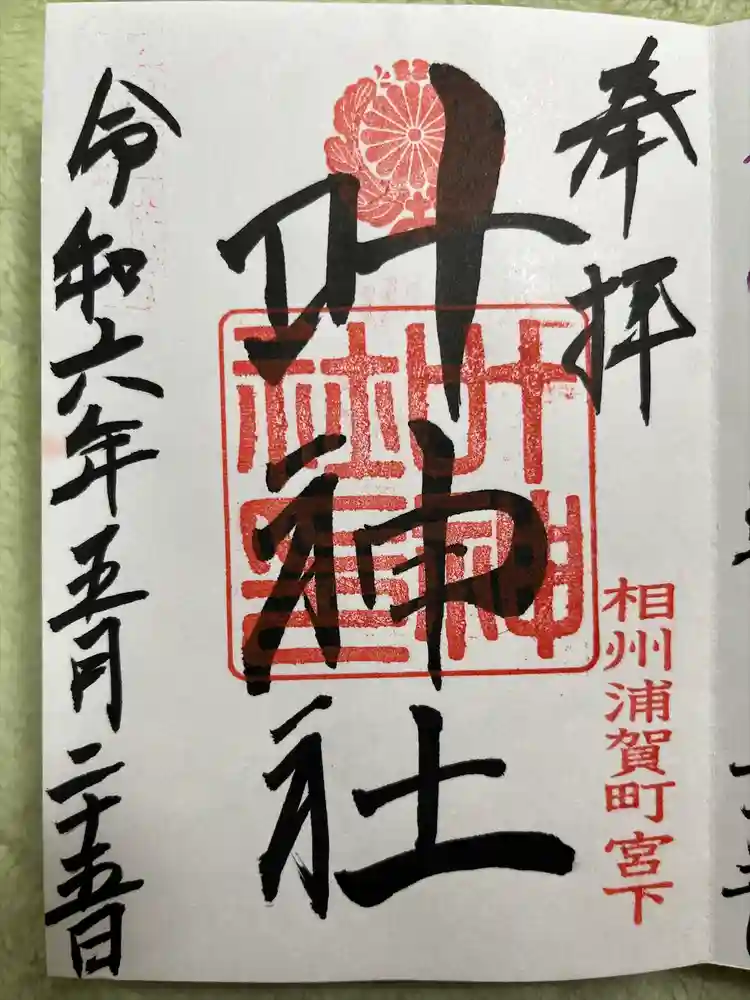 奉拝
相州浦賀町宮下
叶神社
叶神社之印
令和六年五月二十五日